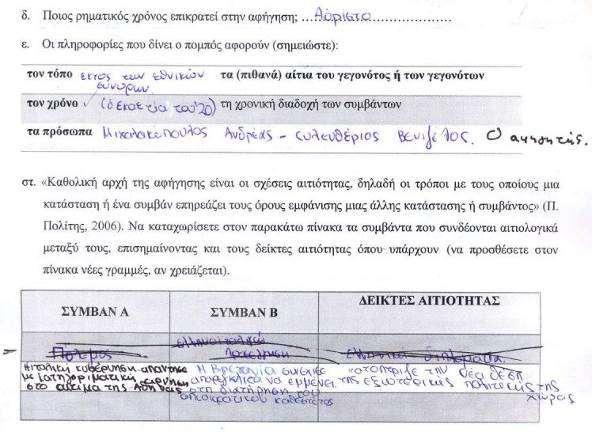 δ. Ποιος ρηματικός χρόνος επικρατεί στην αφήγηση; ...Αόριστο
ε. Οι πληροφορίες που δίνει ο πομπός αφορούν (σημειώστε):
τον τόπο εκτός των εθνικών συνόρων τα (πιθανά) αίτια του γεγονότος ή των γεγονότων
τον χρόνο (δεκαετία του '20) τη χρονική διαδοχή των συμβάντων
τα πρόσωπα Μιχαλακόπουλος Ανδρέας - Ελευθέριος Βενιζέλος. Ο αφηγητής.
στ. «Καθολική αρχή της αφήγησης είναι οι σχέσεις αιτιότητας, δηλαδή οι τρόποι με τους οποίους μια
κατάσταση ή ένα συμβάν επηρεάζει τους όρους εμφάνισης μιας άλλης κατάστασης ή συμβάντος» (Π.
Πολίτης, 2006). Να καταχωρίσετε στον παρακάτω πίνακα τα συμβάντα που συνδέονται αιτιολογικά
μεταξύ τους, επισημαίνοντας και τους δείκτες αιτιότητας όπου υπάρχουν (να προσθέσετε στον
πίνακα νέες γραμμές, αν χρειάζεται).
ΣΥΜΒΑΝ Α ΣΥΜΒΑΝ Β ΔΕΙΚΤΕΣ ΑΙΤΙΟΤΗΤΑΣ
Πόλεμος
κυβέρνηση απάντησε Η Βρετανία κατόπτριζε την νέα θέση
με στο αίτημα της Αθήνας να εμμένει στη διατήρηση του καθεστώτος της εξωτερικής πολιτικής της χώρας